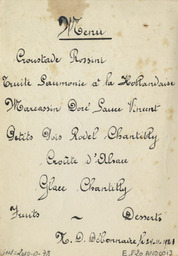 Menu
Croustade Rossini
Truite Saumonée à la Hollandaise
Marcassin Doré Sauce Vincent
Petits Pois Rodel Chantilly
Croûte d'Alsace
Glace Chantilly
Fruits ~ Desserts
N. D. Débonnaire, le 24.11.1921